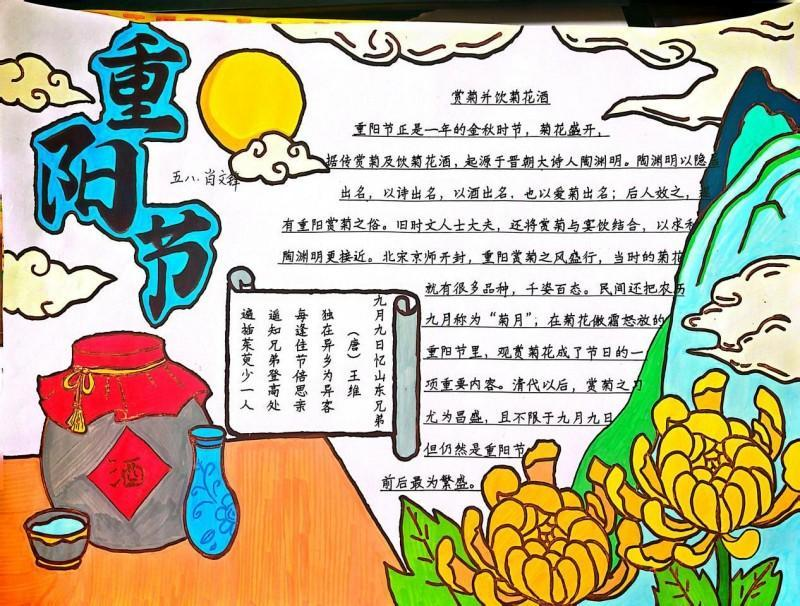 重阳节
五八.肖文
赏菊并饮菊花酒
重阳节正是一年的金秋时节，菊花盛开，
据传赏菊及饮菊花酒，起源于晋朝大诗人陶渊明。陶渊明以隐
出名，以诗出名，以酒出名，也以爱菊出名；后人效之，
有重阳赏菊之俗。旧时文人士大夫，还将赏菊与宴饮结合，以求和
陶渊明更接近。北宋京师开封，重阳赏菊之风盛行，当时的菊花
就有很多品种，千姿百态。民间还把农历
九月称为“菊月”，在菊花傲霜怒放的
重阳节里，观赏菊花成了节日的一
项重要内容。清代以后，赏菊之习
尤为昌盛，且不限于九月九日
但仍然是重阳节
前后最为繁盛。
九月九日忆山东兄弟
（唐）王维
独在异乡为异客
每逢佳节倍思亲
遥知兄弟登高处
遍插茱萸少一人
酒